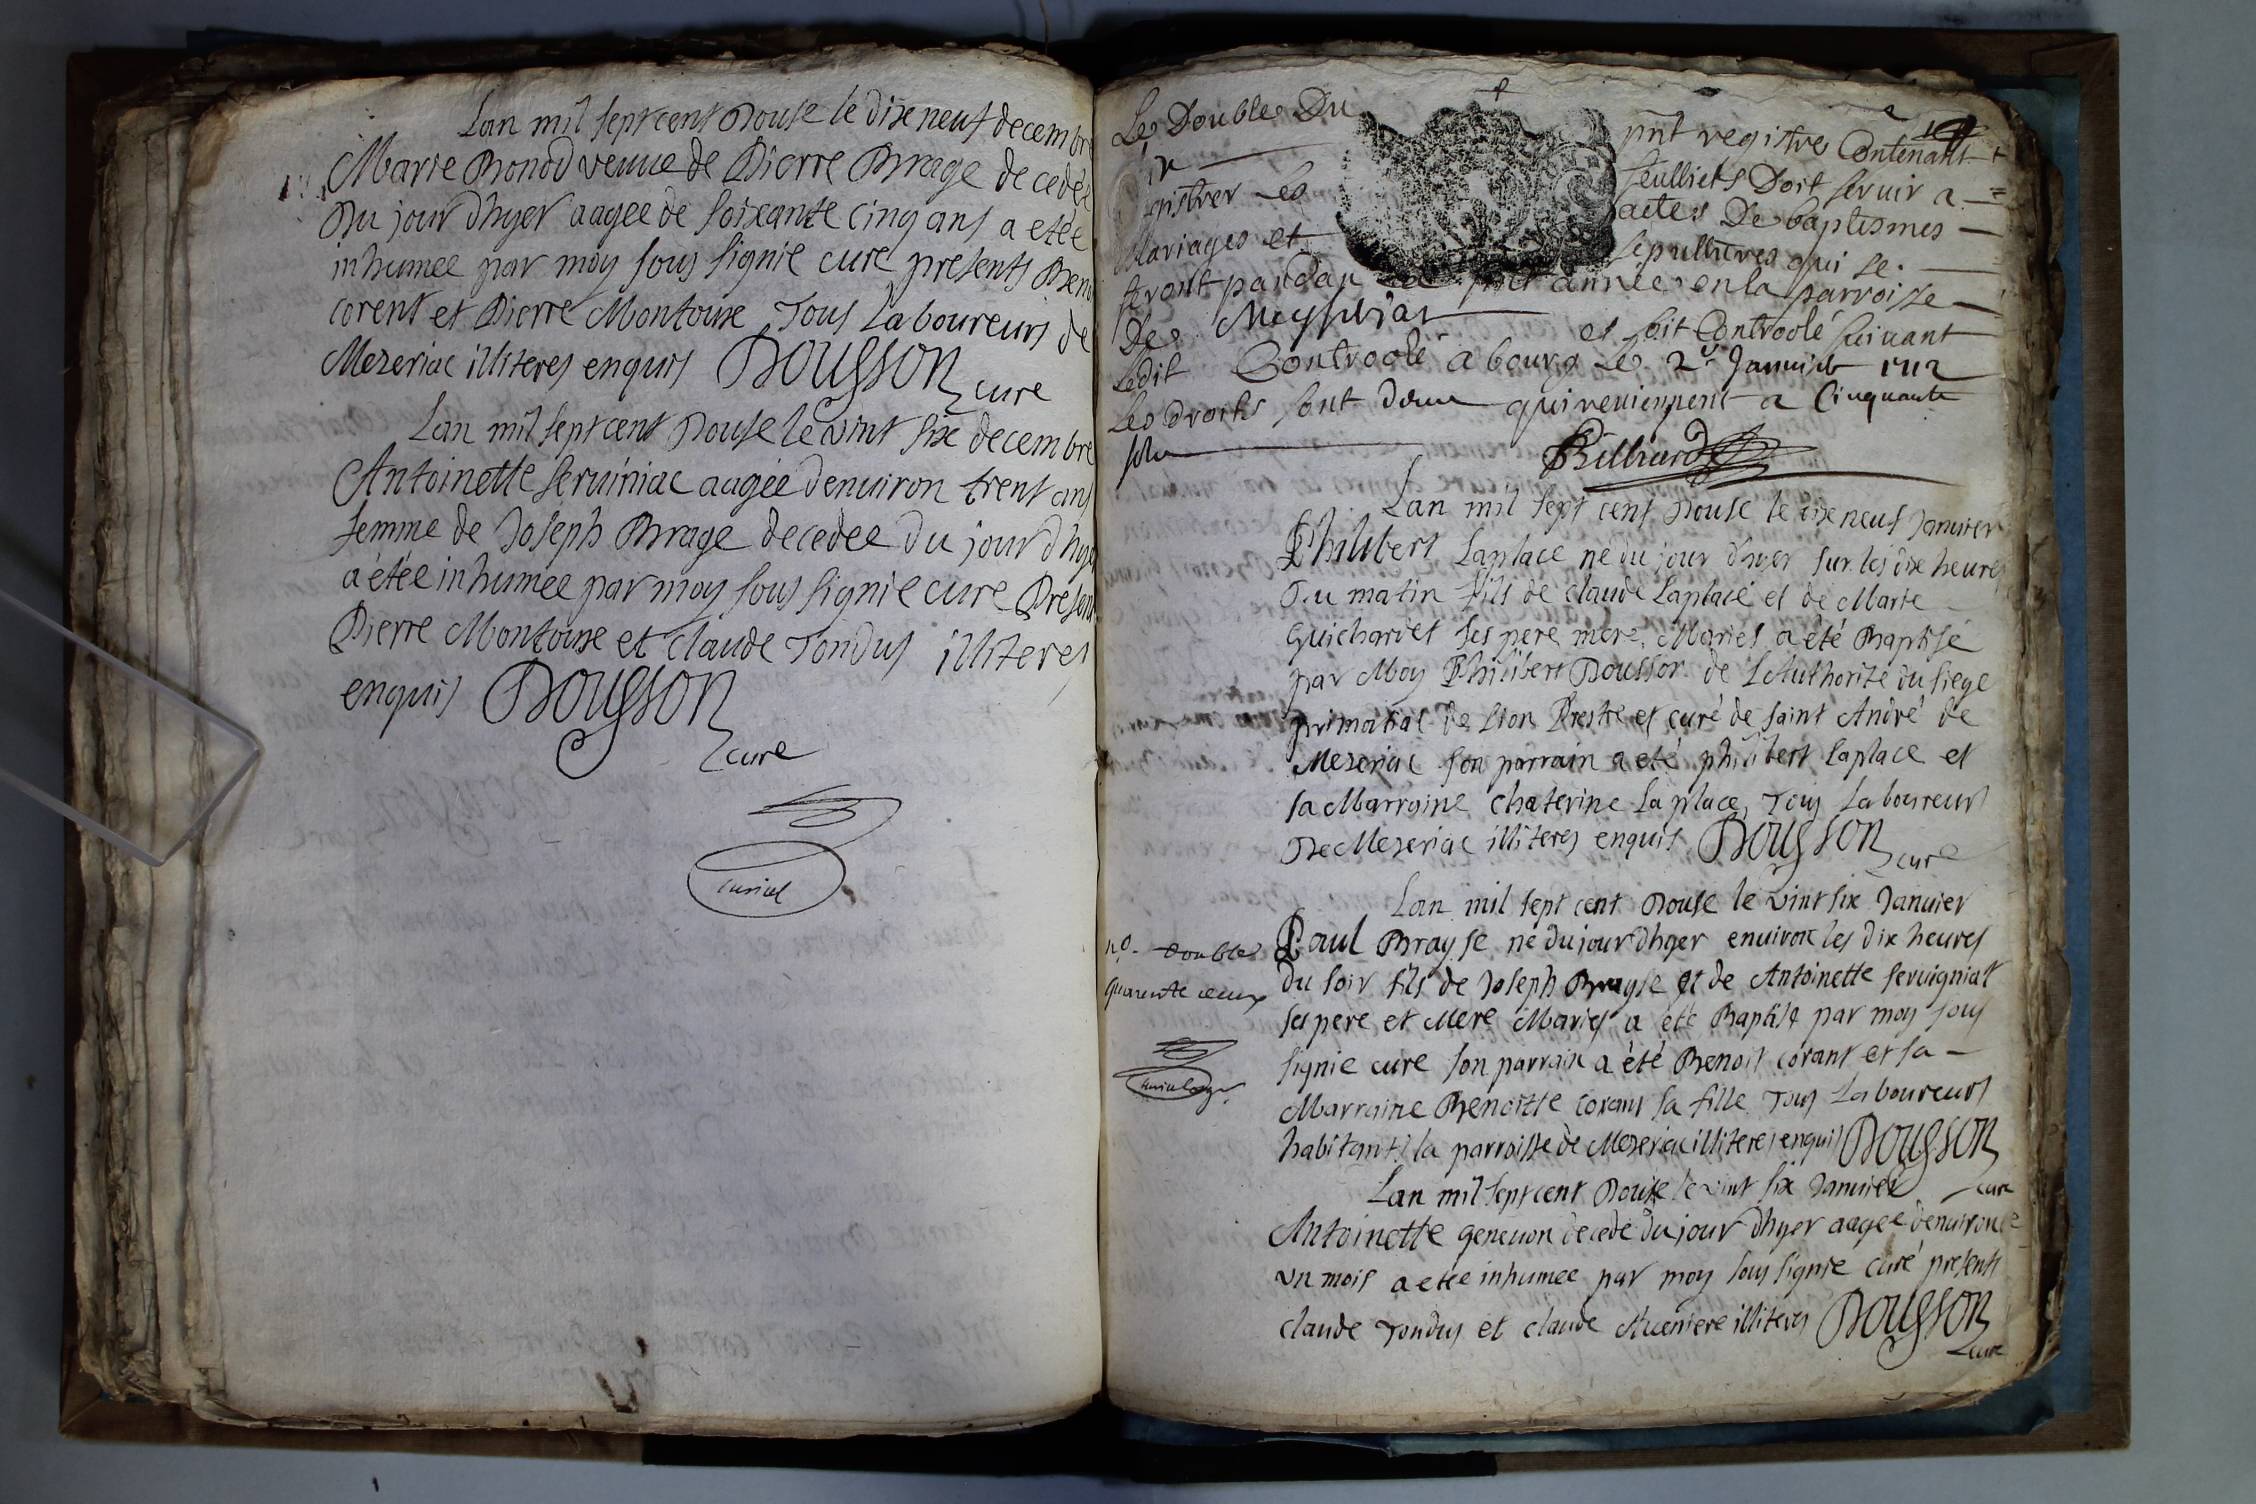 Lan mil septcent Douse le dixe neuf decembre
Marie Bonod veuue de Pierre Brage decedée
Du jour dhyer aagee de soixante cinq ans a etée
inhumee par moy sous signie curé presents Beno
corent et Pierre Montoux Tous Laboureurs de
Mezeriac illiteres enquis Dousson cure
Lan mil septcent Douse le vint six decembre
Antoinette seruiniac aagée denuiron trent ans
femme de Joseph Brage decedee du jour dhyer
a étée inhumee par moy sous signie cure Present
Pierre Montoux et claude Tondus illiteres
enquis Dousson
cure
Le Double Du pnt registre Contenant
feulliets Doit seruir a
gistrer les actes De baptesmes
Mariages et sepultures qui se
feront pandan année en la parroisse
De et soit Controolé suiuant
Ledit Controolé a bourg Le 2e Januier 1712
Les Droits sont deux qui reuiennent a Cinquante
sols
Billiard
Lan mil sept cent Douse le dixe neuf Januier
Philibert Laplace né du jour dhyer sur les dix heures
Du matin fils de claude Laplace et de Marie
Guichardet ses pere mere Mariés a été Baptisé
par Moy Philibert Dousson de L'Authorité du siege
primatial de Lion Prestre et curé de saint André de
Mezeriac son parrain a eté philibert Laplace et
sa Marraine Chaterine La place, Tous Laboureurs
De Mezeriac illiteres enquis Dousson cure
Lan mil sept cent Douse le vint six Januier
Paul Brayse né du jour dhyer enuiron les dix heures
du soir fils de Joseph Brayse et de Antoinette seruigniat
ses pere et Mere Mariés a été Baptisé par moy sous
signie cure son parrain a été Benoit corant et sa
Marraine Benoitte corant sa fille Tous Laboureurs
habitants la parroisse de Mezeriac illiteres enquis Dousson
cure
no. double
quarente deux
Lan mil septcent Douse le vint six Januier
Antoinette geneuon decedé du jour dhyer aagee denuiron
vn mois a etée inhumee par moy sous signie curé presents
claude Tondus et claude illiteres Dousson
cure